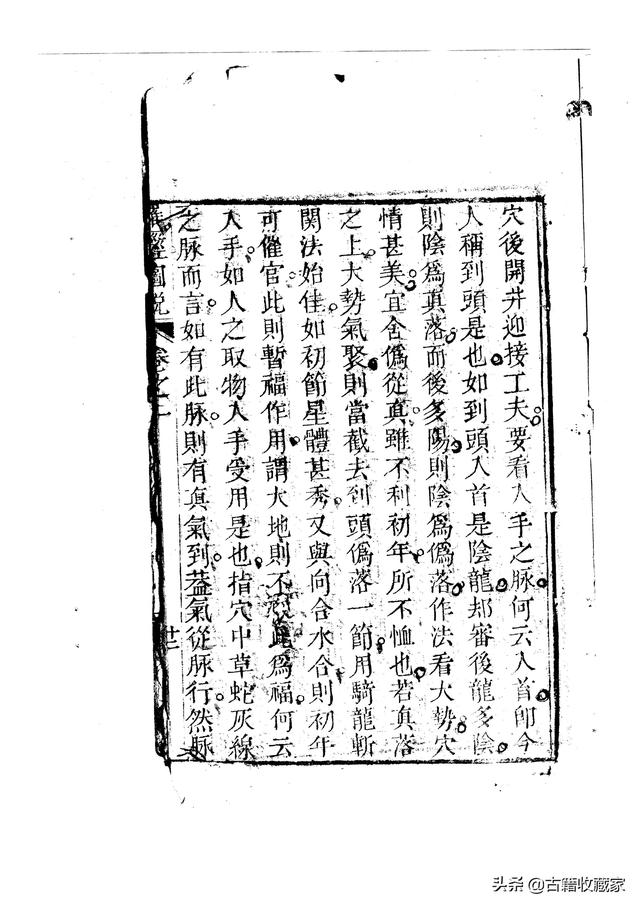 穴後開井迎接工夫。要看入手之脉。何云入首。卽今
人稱到頭是也。如到頭入首是陰龍。却審後龍多陰。
則陰爲真落。而後多陽。則陰爲僞落。作法看大勢穴
情甚美。宜舍僞從真。雖不利初年。所不恤也。若真落
之上大勢氣聚。則當截去到頭僞落一節。用騎龍斬
関法始佳。如初節星體甚秀。又與向合水合。則初年
可催官。此則暫福作用。謂大地則不 此爲福。何云
入手。如人之取物入手受用是也。指穴中草蛇灰線
之脉而言。如有此脉。則有真氣到。葢氣從脉行。然脉
經圖説 卷之二 廿二
头条 @古籍收藏家